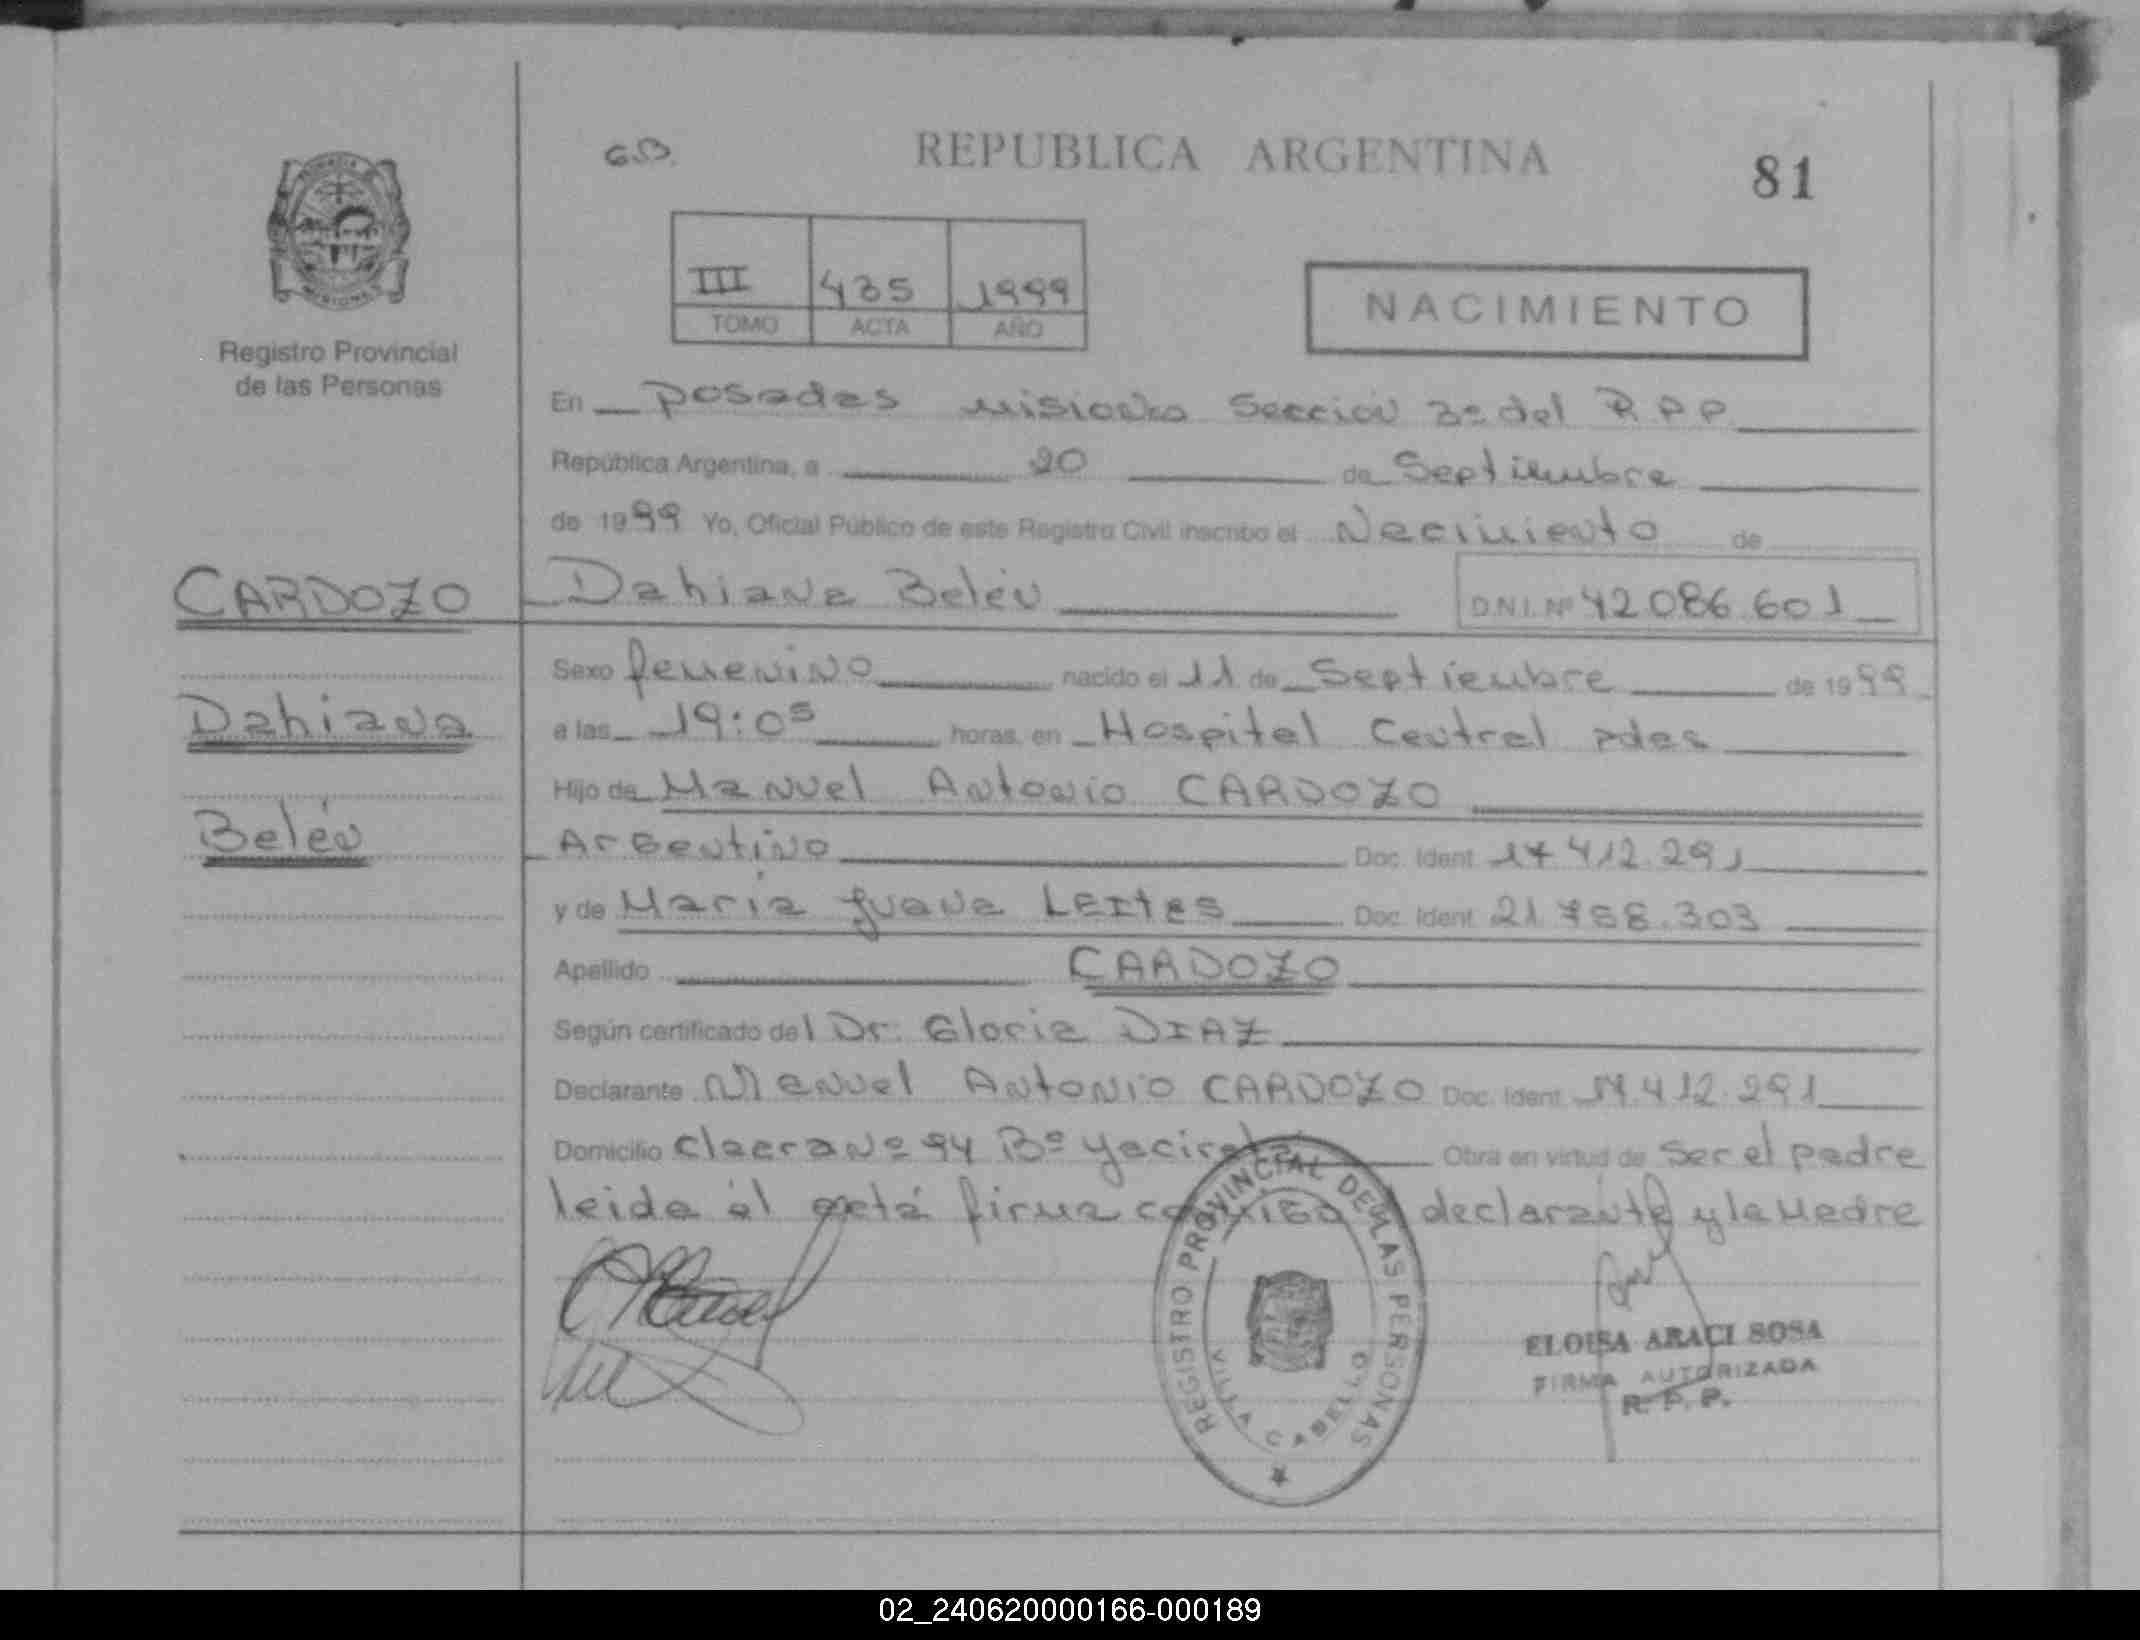 GB.
REPUBLICA ARGENTINA
81
III 435 1999
TOMO ACTA AÑO
NACIMIENTO
Registro Provincial
de las Personas
En Posadas Misiones Sección 3º del R.P.P.
República Argentina, a 20 de Septiembre
de 1999 Yo, Oficial Público de este Registro Civil inscribo el Nacimiento de
CARDOZO Dahiana Belén D.N.I. Nº 42086.601
Sexo femenino nacido el 11 de Septiembre de 1999
Dahiana
a las 19:05 horas, en Hospital Central pdas
Hijo de Manuel Antonio CARDOZO
Belén
Argentino Doc. Ident. 17 412.291
y de María Juana LEITES Doc. Ident. 21 758.303
Apellido CARDOZO
Según certificado del Dr. Gloria DIAZ
Declarante Manuel Antonio CARDOZO Doc. Ident. 17.412.291
Domicilio chacra Nº 94 Bº yacireta Obra en virtud de ser el padre
leida el acta firma conmigo declarante y la Madre
REGISTRO PROVINCIAL DE LAS PERSONAS
VILLA CABELLO
ELOISA ARACI SOSA
FIRMA AUTORIZADA
R. P. P.
02_240620000166-000189